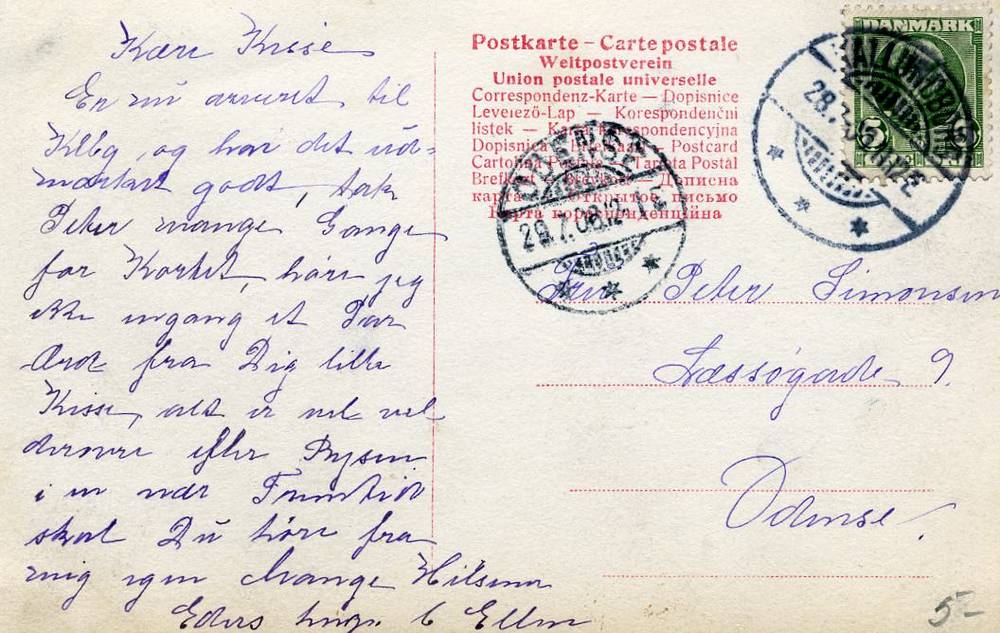 Kære Kisse
Er nu arriveret til
Klbg, og har det ud-
mærket godt, tak
Peter mange Gange
for Kortet, hører jeg
ikke engang et Par
Ord fra Dig lille
Kisse, alt er vel vel
derovre efter Rejsen
i en nær Fremtid
skal Du høre fra
mig igen Mange Hilsner
Eders Ellen
Postkarte – Carte postale
Weltpostverein
Union postale universelle
Correspondenz-Karte — Dopisnice
Levelező-Lap — Korespondenční
listek — Karta korespondencyjna
Dopisnica — Postcard
Cartolina Postale — Tarjeta Postal
Brefkort — Дописна
карта — Открытое письмо
Карта кореспонденційна
ODENSE
29.7.08.12-1
DANMARK
5 5
KALLUNDBORG
28.7.
Peter Simonsen
Læssøgade 9.
Odense
5-